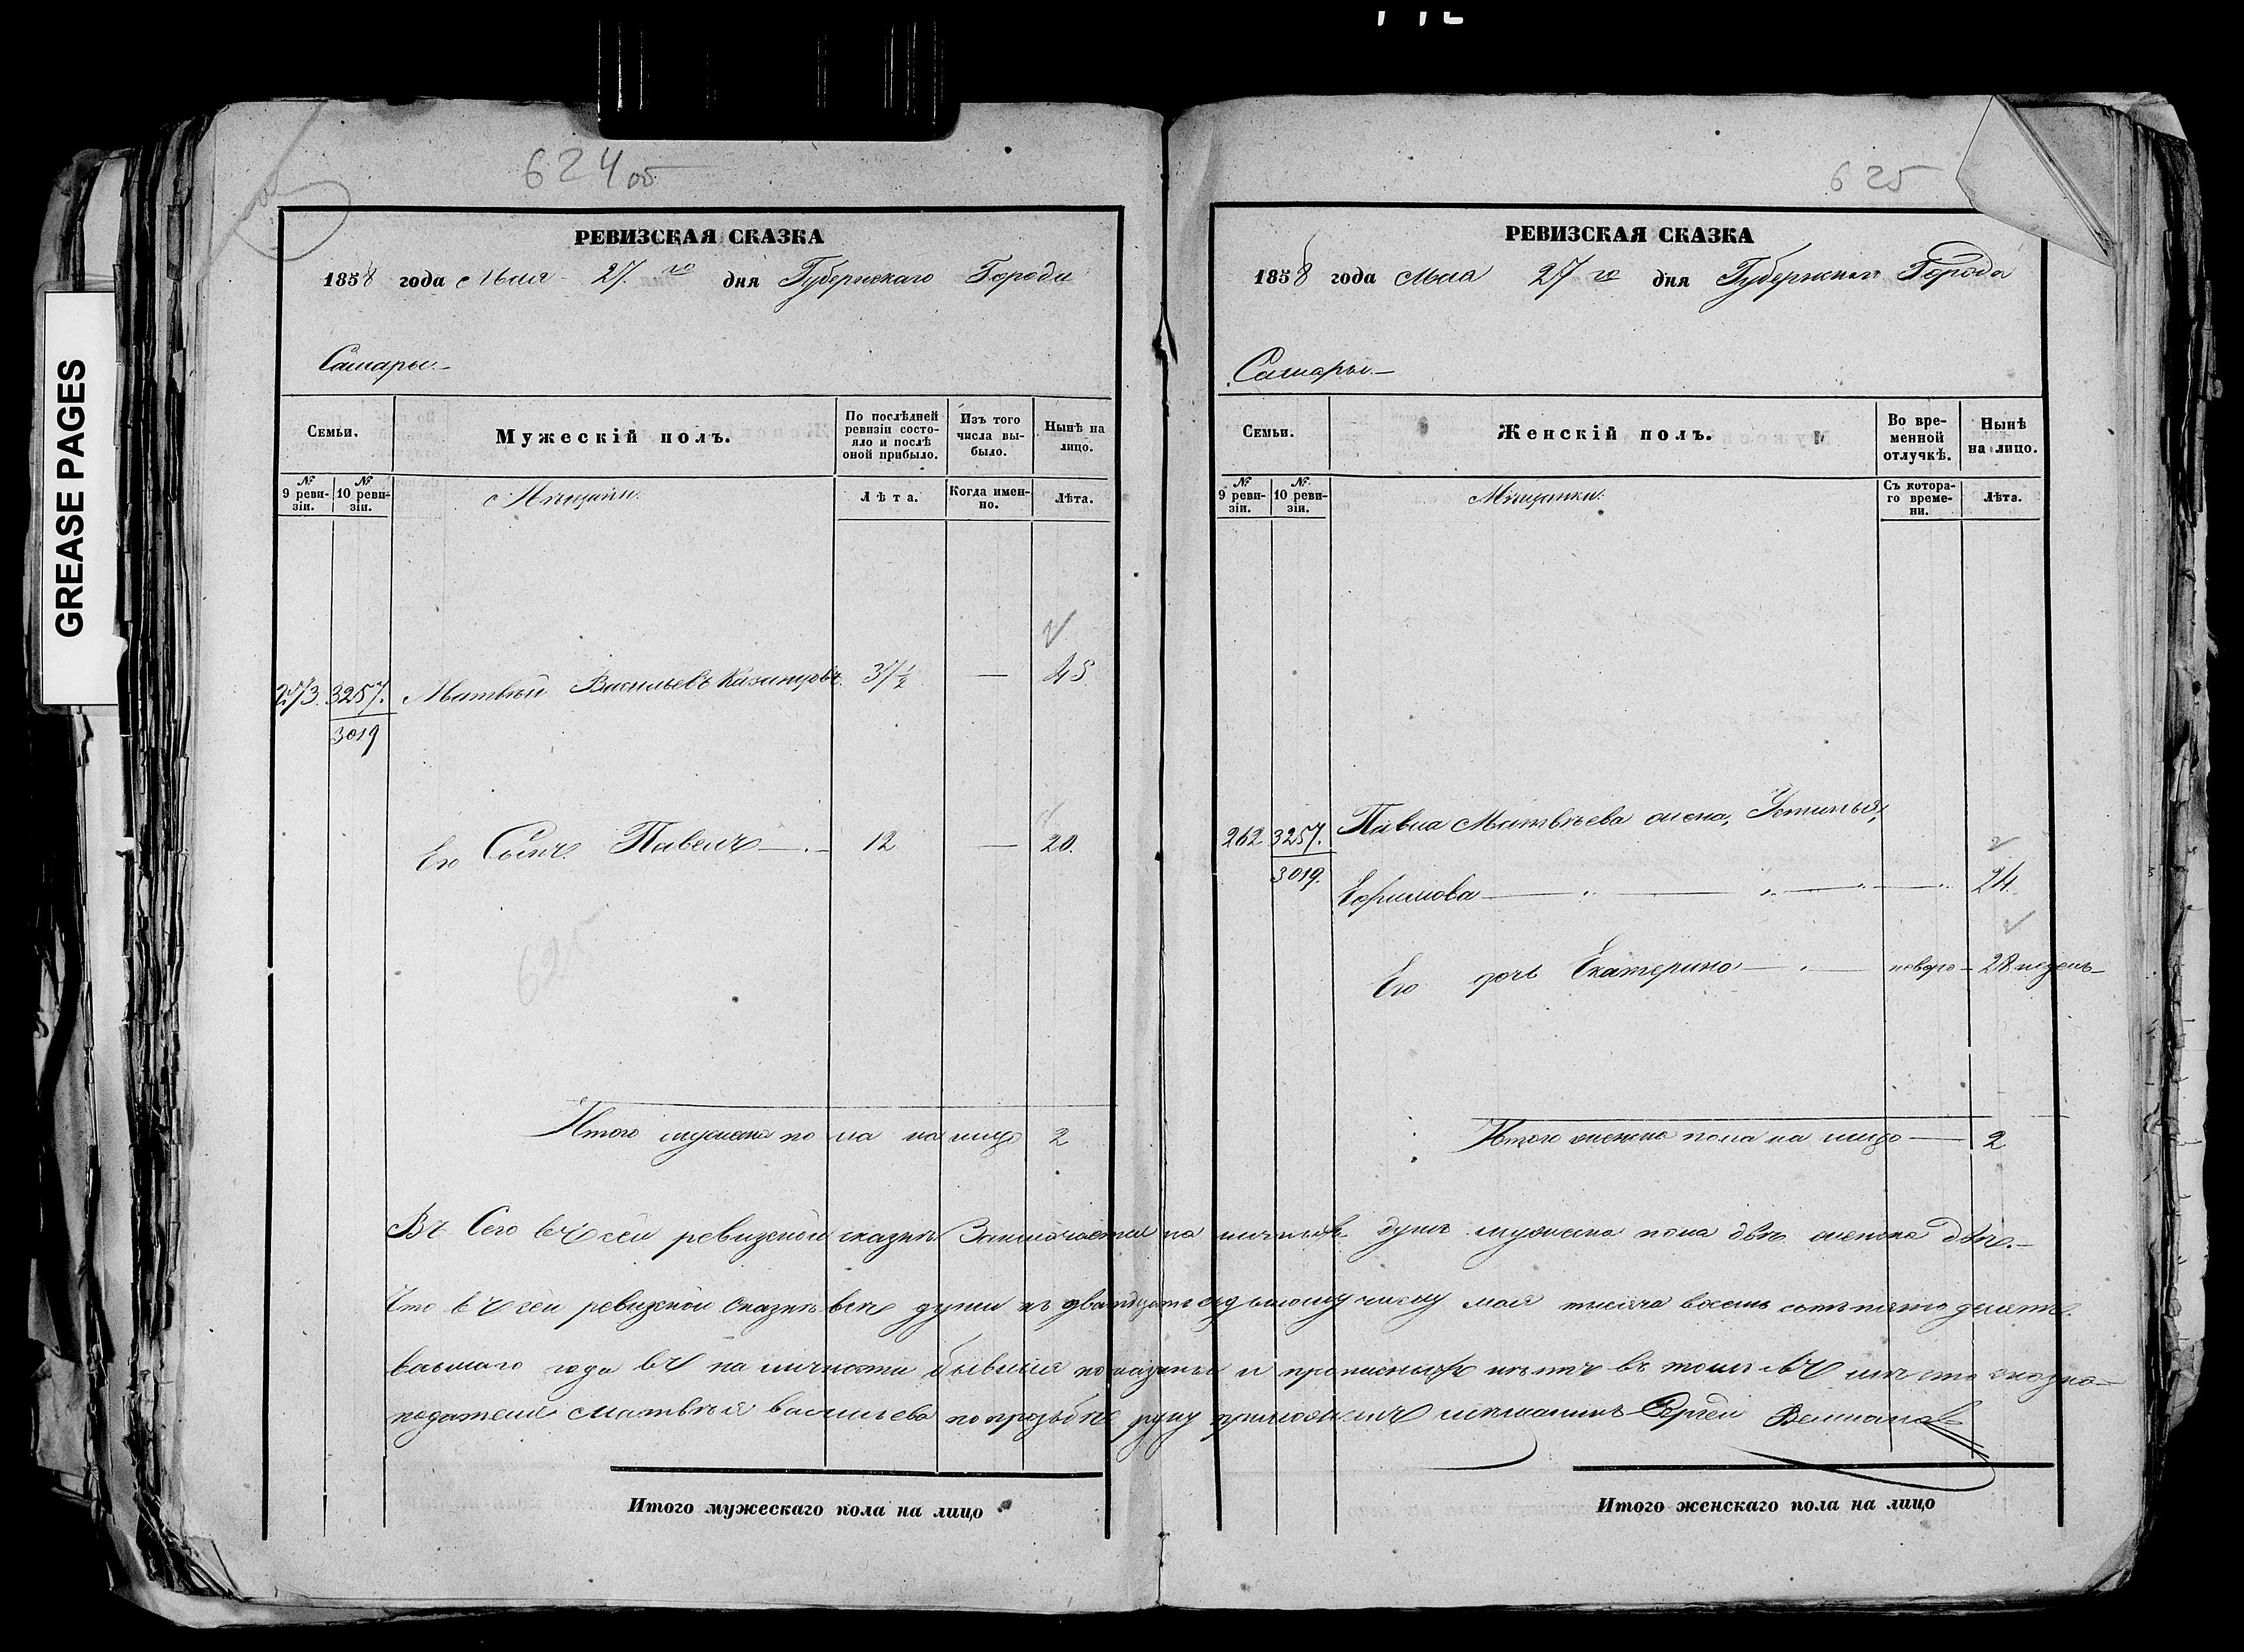 GREASE PAGES
624 об
РЕВИЗСКАЯ СКАЗКА
1858 года Мая 27 го дня Губернскаго Города
Самары.
Семьи.
Мужескій полъ.
По послѣдней ревизіи состояло и послѣ оной прибыло.
Изъ того числа выбыло.
Нынѣ на лицо.
№ 9 ревизіи.
№ 10 ревизіи.
Мѣщане:
Лѣта.
Когда именно.
Лѣта.
3257. Матвѣй Васильевъ 37 1/2 — 45
3019
Его Сынъ Павелъ — 12 — 20.
Итого мужеска пола на лицо 2
Итого мужескаго пола на лицо
625
РЕВИЗСКАЯ СКАЗКА
1858 года Мая 27 го дня Губернскаго Города
Самары. —
Семьи.
Женскій полъ.
Во временной отлучкѣ.
Нынѣ на лицо.
№ 9 ревизіи.
№ 10 ревизіи.
Мѣщанки:
Съ котораго времени.
Лѣта.
262 3257. Павла Матвѣева жена, Устинья
3019. Ефимова — 24.
Его дочь Екатерина — 28 недель
Итого женска пола на лицо — 2
Итого женскаго пола на лицо
Въ сей ревизской сказкѣ Заключается на личныхъ душъ мужеска пола двѣ женска двѣ. —
Что въ сей ревизской Сказкѣ всѣ души къ двадцать седьмому числу мая тысяча восемь сотъ пятьдесятъ
восьмаго года въ наличности бывшія показаны и прописныхъ нѣтъ въ томъ
подателя Матвѣя васильева по прозьбѣ руку приложилъ мѣщанинъ Сергей